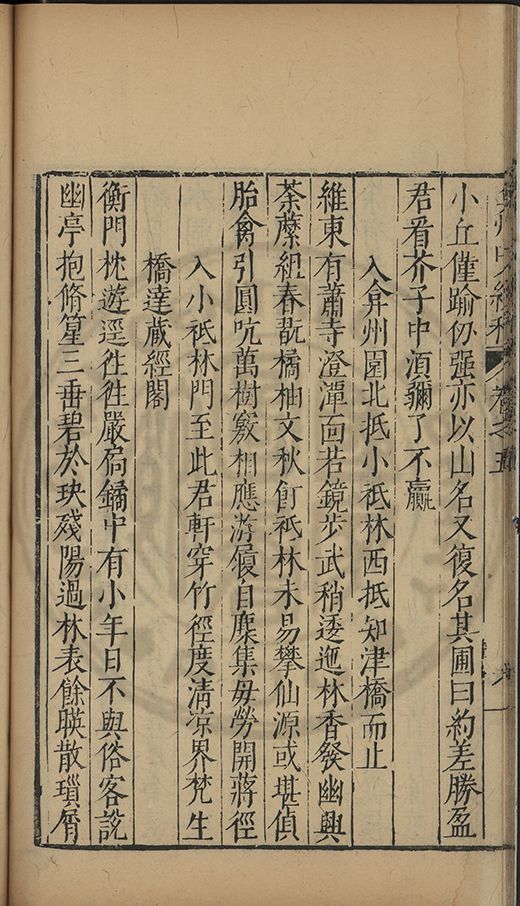 弇州山人續稿 卷之五
小丘僅踰仞强亦以山名又復名其圃曰約差勝盈
君看芥子中須彌了不羸
入弇州園北抵小祇林西抵知津橋而止
維東有蕭寺澄潭面若鏡步武稍逶迤林香發幽興
荼蘼組春翫橘柚文秋飣祇林未易攀仙源或堪偵
胎禽引圓吭萬樹竅相應游履自麇集毋勞開蔣徑
入小祇林門至此君軒穿竹徑度清凉界梵生
橋達藏經閣
衡門枕遊逕往往嚴扃鐍中有小年日不與俗客說
幽亭抱脩篁三垂碧於玦殘陽過林表餘暎散瑣屑